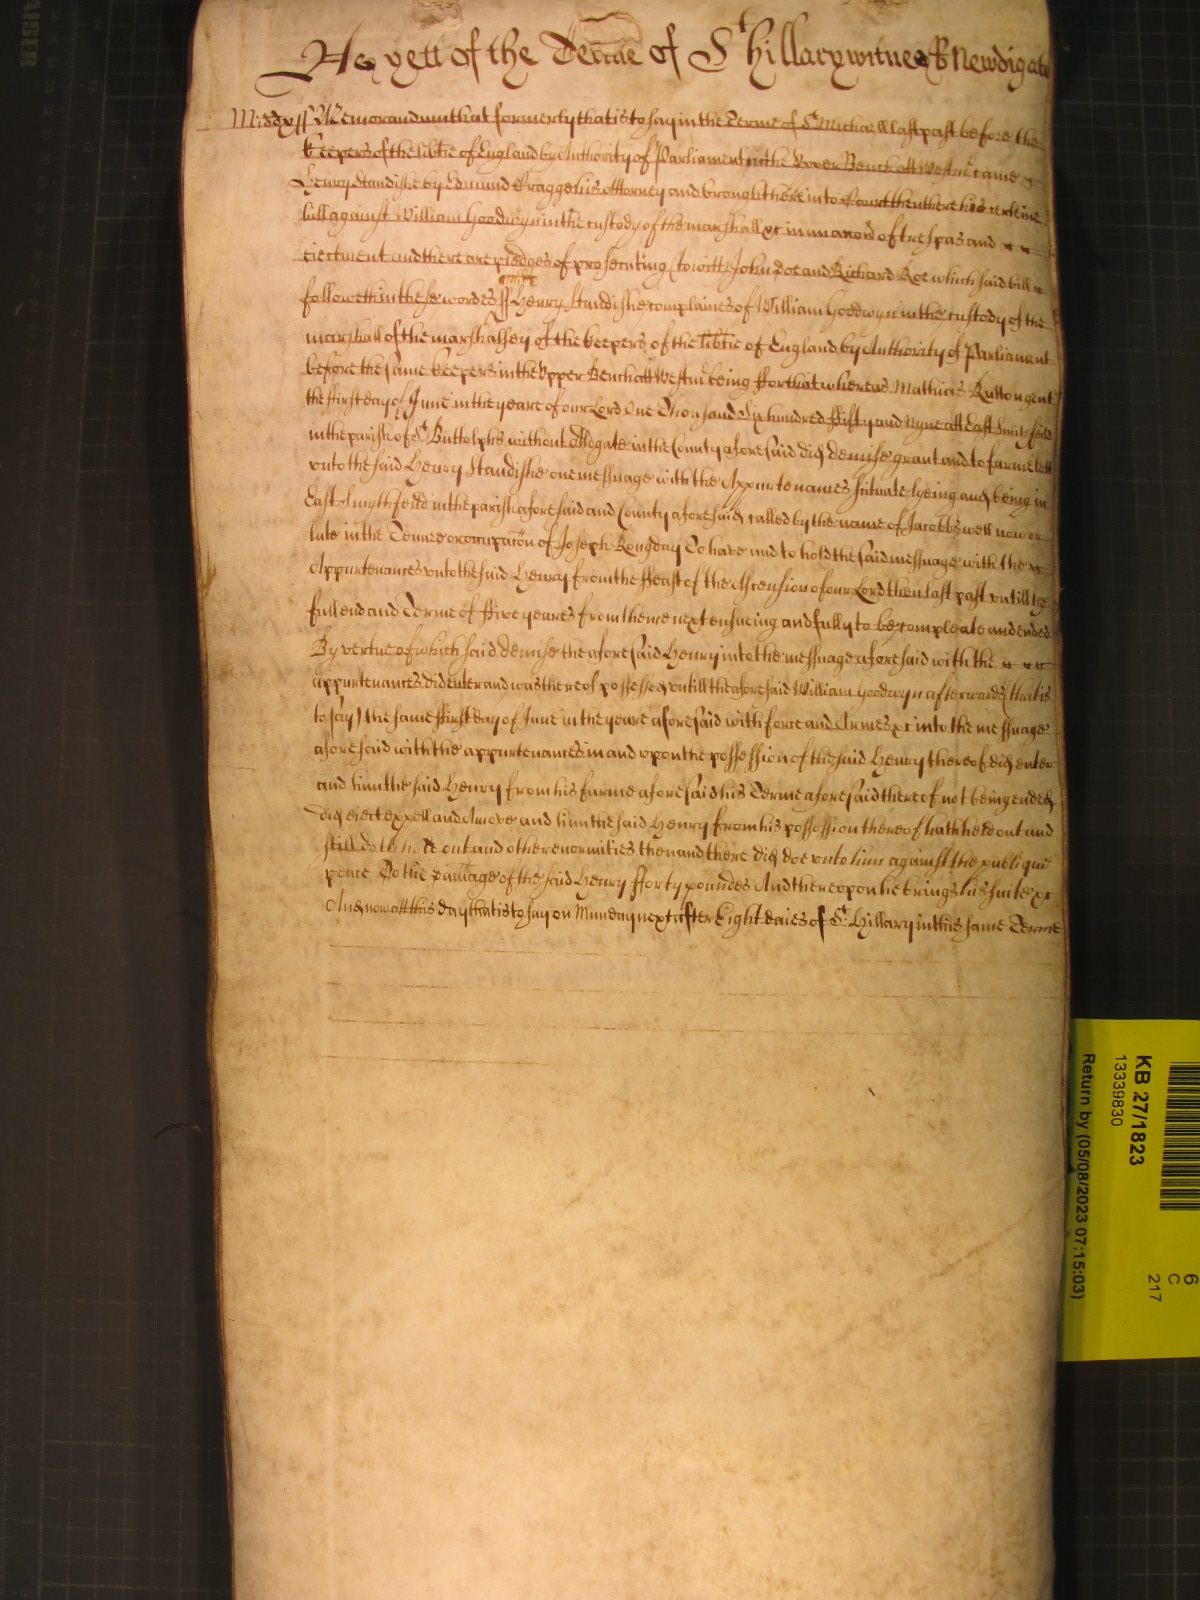 As yett of the Terme of St Hillary witnes R Newdigate
Middx ss Memorandum that formerly that is to say in the Terme of St Michaell last past before the
keepers of the lib'tie of England by Authority of Parliament in the Vpper Bench att Westm' came
Henry Standishe by Edmund Fragge his Attorney and brought here into Court then there his certeine
bill against William Goodwyn in the custody of the marshall &c in an accon' of trespas and
Eiectment and there are pledges of prosecuting (to witt) John Doe and Richard Roe which said bill
followeth in these wordes ss Middx Henry Standishe complaines of William Goodwyn in the custody of the
marshall of the marshalsey of the keepers of the lib'tie of England by Authority of Parliament
before the same keepers in the Vpper Bench att Westm' being ffor that whereas Mathias Rutton gent
the ffirst day of June in the yeare of our Lord One Thousand Six hundred ffifty and Nyne att East Smithfeild
in the parish of St Buttolphs without Aldgate in the County aforesaid did demise grant and to farme lett
vnto the said Henry Standishe one messuage with the Appurtenances scituate lyeing and being in
East Smythfeild in the parish aforesaid and County aforesaid called by the name of Jacobbs well now or
late in the Tenure or occupacon' of Joseph Kongday To have and to hold the said messuage with the
Appurtenances vnto the said Henry from the ffeast of the Ascension of our Lord then last past vntill the
full end and Terme of ffive yeares from thence next ensueing and fully to be compleate and ended
By vertue of which said demise the aforesaid Henry into the messuage aforesaid with the
appurtenances did enter and was thereof possessed vntill the aforesaid William Goodwyn afterwards (that is
to say) the same ffirst day of June in the yeare aforesaid with force and Armes &c into the messuage
aforesaid with the appurtenances in and vpon the possession of the said Henry thereof did enter
and him the said Henry from his farme aforesaid his Terme aforesaid thereof not being ended
did eiect expell and Amove and him the said Henry from his possession thereof hath held out and
still doth hold out and other enormities then and there did doe vnto him against the publique
peace To the damage of the said Henry fforty poundes And therevpon he brings his suite &c
And now att this day that is to say on Munday next after Eight daies of St Hillary in this same Terme
KB 27/1823
13339830
Return by (05/08/2023 07:15:03)
6
C
217